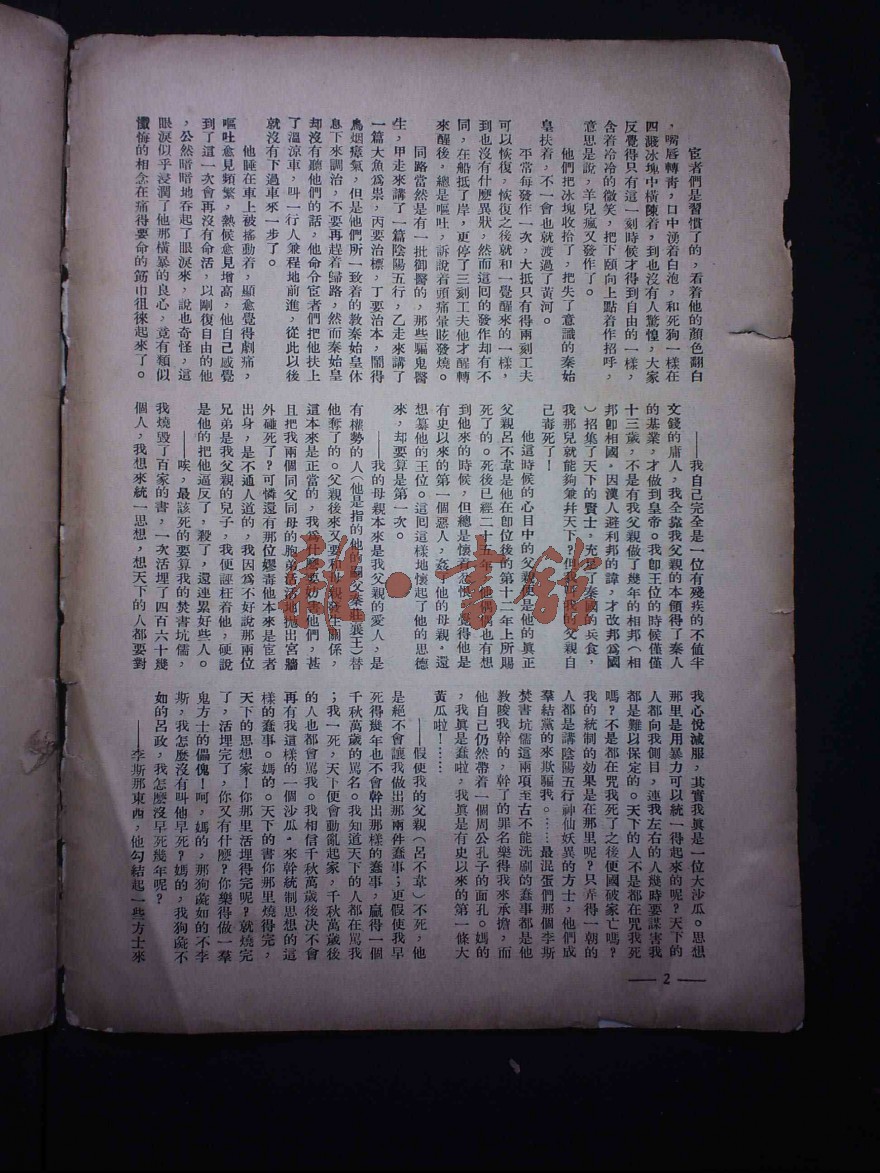 宦者們是習慣了的，看着他的顏色翻白
，嘴唇轉青，口中湧着白泡，和死狗一樣在
四濺冰塊中橫陳着，到也沒有人驚惶，大家
反覺得只有這一刻時候才得到自由的一樣，
含着冷冷的微笑，把下頤向上點着作招呼，
意思是說，羊兒瘋又發作了。
他們把冰塊收拾了，把失了意識的秦始
皇扶着，不一會也就渡過了黃河。
平常每發作一次，大抵只有得兩刻工夫
可以恢復，恢復之後就和一覺醒來的一樣，
到也沒有什麼異狀，然而這囘的發作却有不
同，在船抵了岸，更停了三刻工夫他才醒轉
來醒後，總是嘔吐，訴說着頭痛暈眩發燒。
同路當然是有一批御醫的，那些騙鬼醫
生，甲走來講了一篇陰陽五行，乙走來講了
一篇大魚爲祟，丙要治標，丁要治本，鬧得
烏烟瘴氣，但是他們所一致着的教秦始皇休
息下來調治，不要再趕着歸路，然而秦始皇
却沒有聽他們的話，他命令宦者們把他扶上
了溫凉車，叫一行人兼程地前進，從此以後
就沒有下過車來一步了。
他睡在車上被搖動着，顯愈覺得劇痛，
嘔吐愈見頻繁，熱候愈見增高，他自己感覺
到了這一次會再沒有命活，以剛復自由的他
，公然暗暗地吞起了眼淚來，說也奇怪，這
眼淚似乎浸潤了他那橫暴的良心，竟有類似
懺悔的相念在痛得要命的筋中徂徠起來了。
——我自己完全是一位有殘疾的不値半
文錢的庸人，我全靠我父親的本領得了秦人
的基業，才做到皇帝。我卽王位的時候僅僅
十三歲，不是有我父親做了幾年的相邦（相
邦卽相國。因漢人避利邦的諱，才改邦爲國
）招集了天下的賢士，充足了秦國的兵食，
我那兒就能夠兼幷天下？但我把我的父親自
己毒死了！
他這時候的心目中的父親便是他的眞正
父親呂不韋是他在卽位後的第十一年上所賜
死了的。死後已經二十五年，他偶偶也有想
到他來的時候，但總是懷有忿恨，覺得他是
有史以來的第一個惡人，姦了他的母親。還
想纂他的王位。這囘這樣地懷起了他的恩德
來，却要算是第一次。
——我的母親本來是我父親的愛人，是
有權勢的人（他是指的他的嗣父秦莊襄王）替
他奪了的。父親後來又要和母親發生關係，
這本來是正當的，我爲什麼要妨害他們，甚
且把我兩個同父同母的胞弟活活地拋出宮牆
外碰死了？可憐還有那位嫪毐他本來是宦者
出身，是不通人道的，我因爲不好說那兩位
兄弟是我父親的兒子，我便誣枉着他，硬說
是他的把他逼反了，殺了，還連累好些人。
——唉，最該死的要算我的焚書坑儒，
我燒毀了百家的書，一次活埋了四百六十幾
個人，我想來統一思想，想天下的人都要對
我心悅減服，其實我眞是一位大沙瓜。思想
那里是用暴力可以統一得起來的呢？天下的
人都向我側目，連我左右的人幾時要謀害我
都是難以保定的。天下的人不是都在咒我死
嗎？不是都在咒我死了之後便國破家亡嗎？
我的統制的效果是在那里呢？只弄得一朝的
人都是講陰陽五行神仙妖異的方士，他們成
羣結黨的來欺騙我。……最混蛋們那個李斯
焚書坑儒這兩項至古不能洗刷的蠢事都是他
敎唆我幹的，幹了的罪名樂得我來承擔，而
他自己仍然帶着一個周公孔子的面孔。媽的
，我眞是蠢啦，我眞是有史以來的第一條大
黃瓜啦！……
——假使我的父親（呂不韋）不死，他
是絕不會讓我做出那兩件蠢事；更假使我早
死得幾年也不會幹出那樣的蠢事，贏得一個
千秋萬歲的罵名。我知道天下的人都在罵我
；我一死，天下便會動亂起家，千秋萬歲後
的人也都會罵我。我相信千秋萬歲後决不會
再有我這樣的一個沙瓜，來幹統制思想的這
樣的蠢事。媽的。天下的書你那里燒得完，
天下的思想家！你那里活埋得完呢？就燒完
了，活埋完了，你又有什麼？你樂得做一羣
鬼方士的傀儡！呵，媽的，那狗彘如的不李
斯，我怎麼沒有叫他早死？媽的，我狗彘不
如的呂政，我怎麼沒早死幾年呢？
——李斯那東西，他勾結起一些方士來
— 2 —
龍·書館